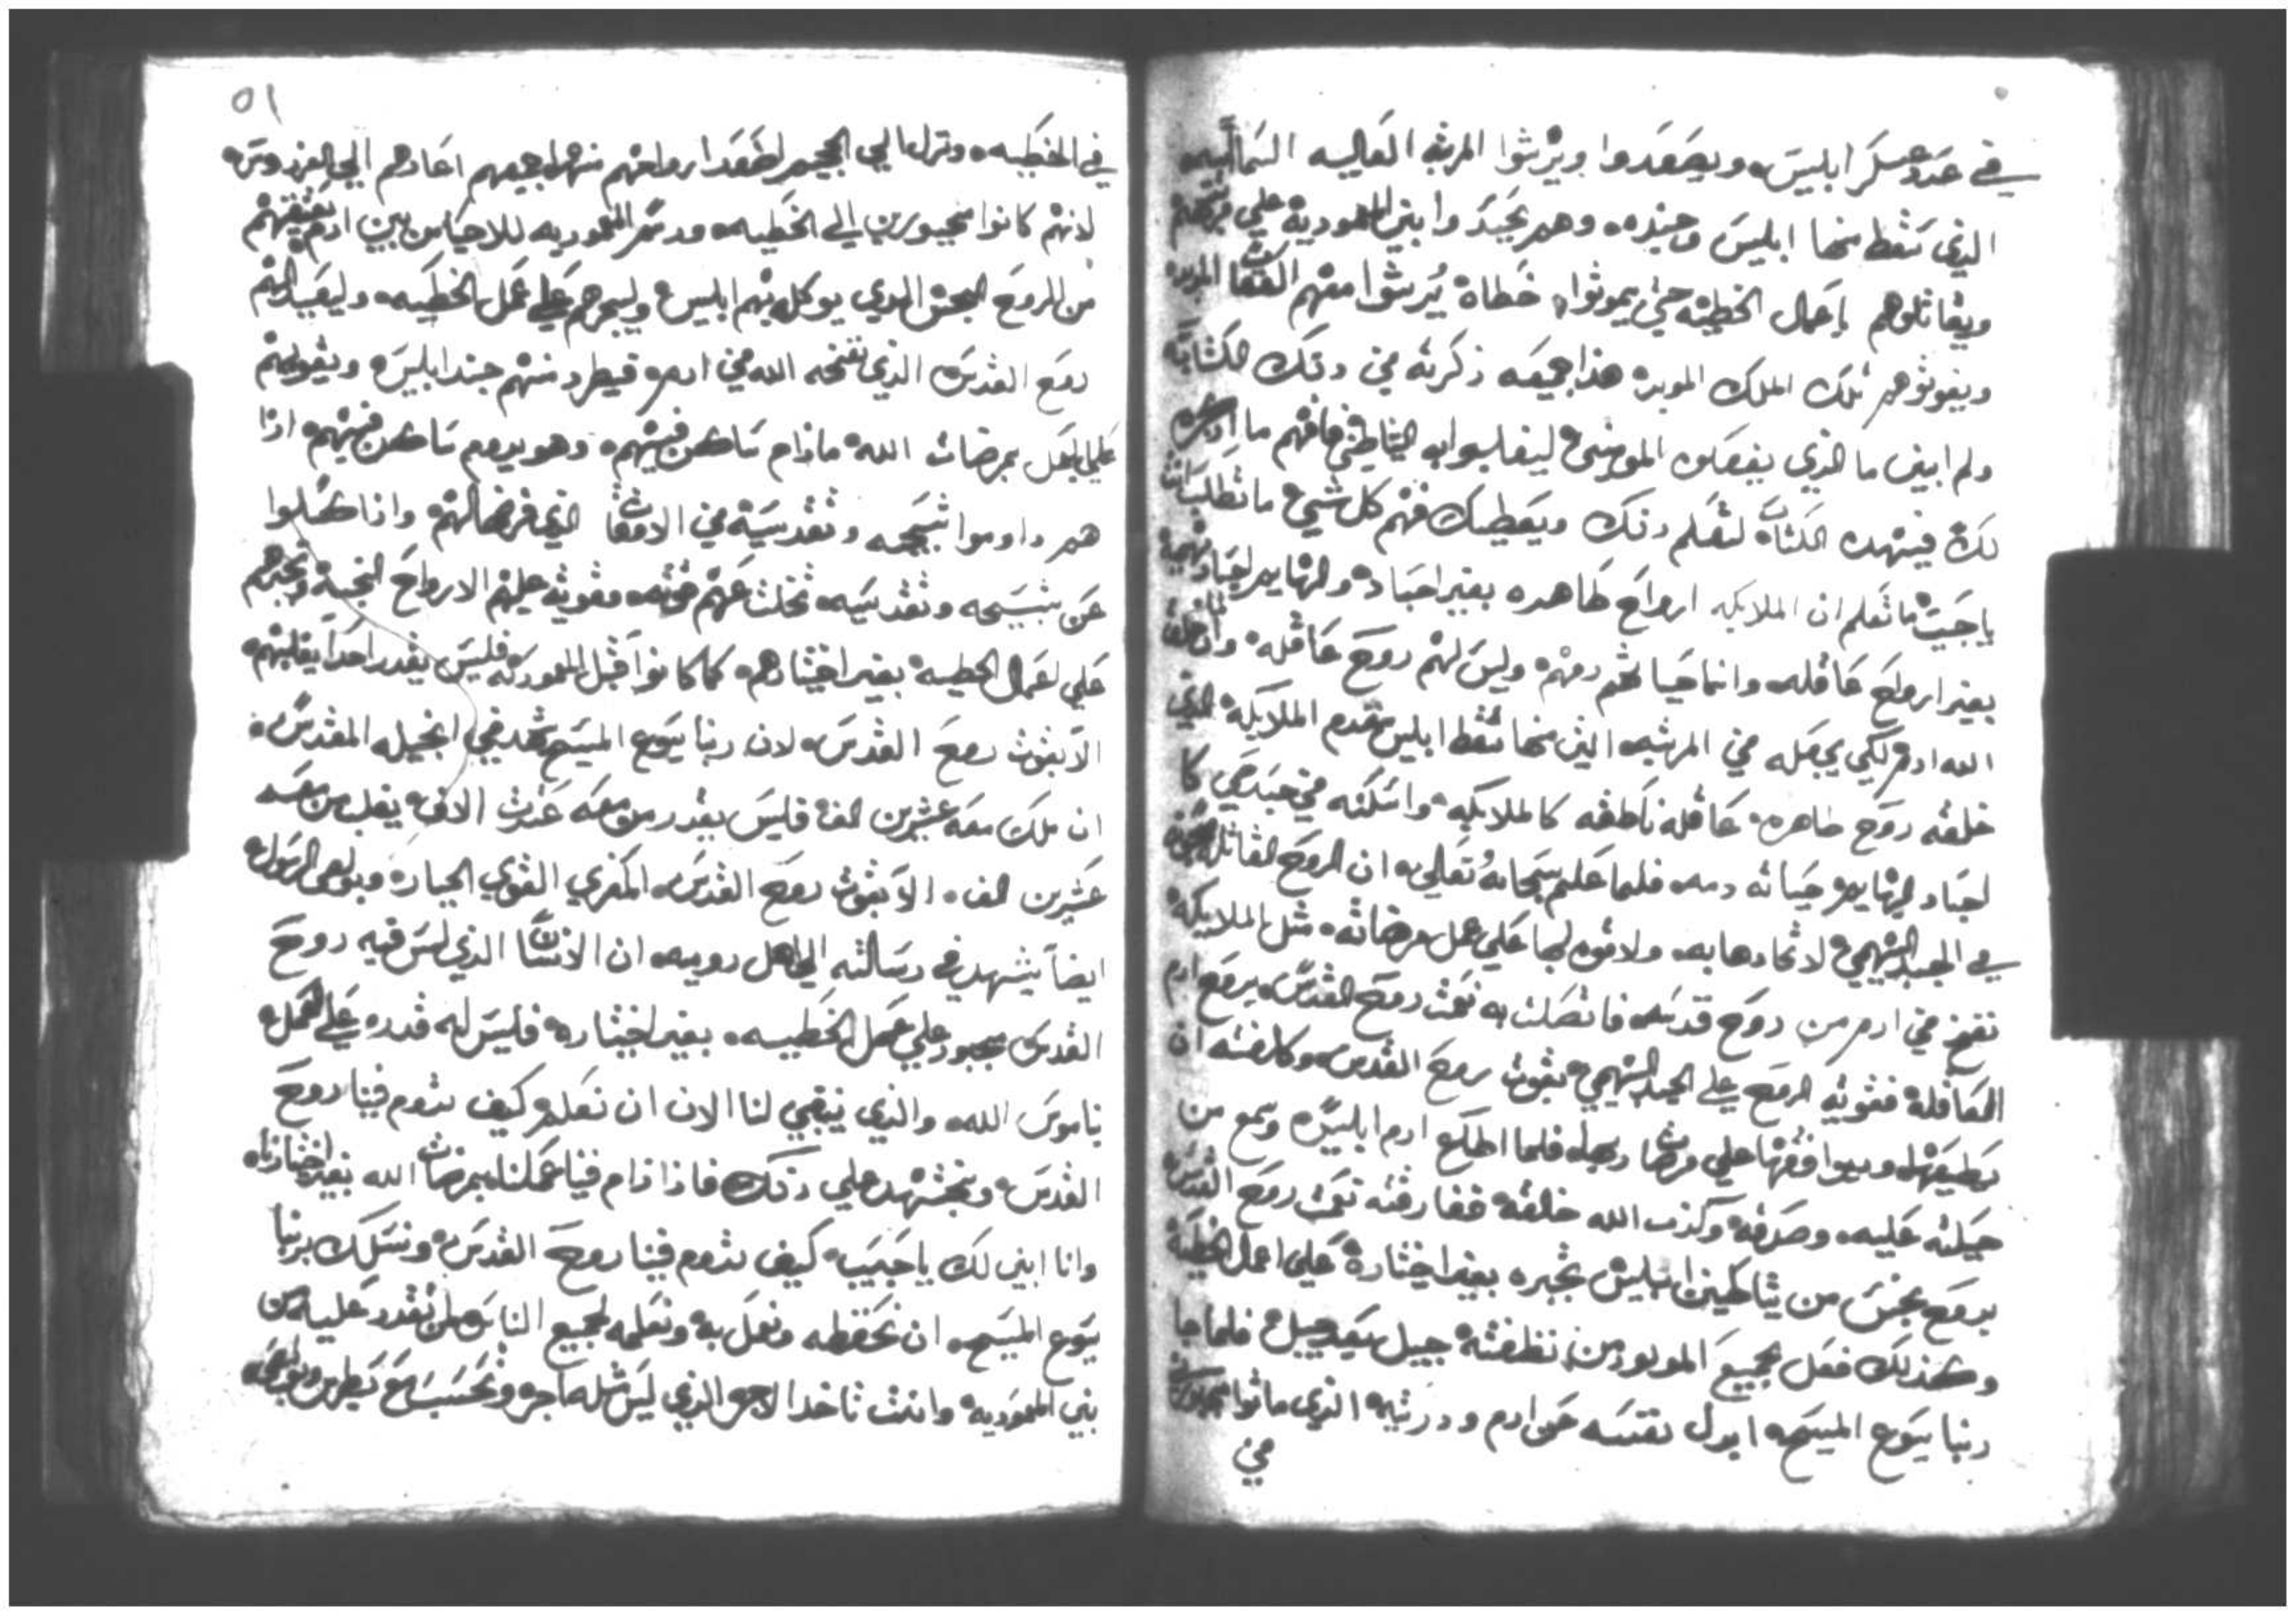 في عدد عسكر ابليس ويصعدوا ويرثوا المرتبه العاليه السماييه
الذي سقط منها ابليس وجنده وهم يجتدوا بني المعموديه علي
ويقاتلوهم باعمال الخطيه حتي يموتوا خطاه يرثوا معهم العقاب المويد
ويفوتوهم تلك الملك الموبد هذا جميعه ذكرته في دلك الكتاب
ولم ابين ما الذي يفعلوه المومنين ليغلبوا به الشياطين فافهم ما اذكره
لك في هده الكتاب لتعلم دلك ويعطيك فهم كل شي ما تطلب
يا حبيب ما تعلم ان الملايكه ارواح طاهره بغير اجساد والبهايم اجساد
بغير ارواح عاقله وانما حياتهم دمهم وليس لهم روح عاقله ولما خلق
الله ادم لكي يجعله في المرتبه التي منها سقط ابليس مقدم الملايكه الذي
خلقه روح طاهره عاقله ناطقه كالملايكه واسكنه في جسد حي كا
اجساد البهايم حياته دمه فلما علم سبحانه وتعالي ان الروح العاقله
في الجسد البهيمي لا ثحادها به ولا قوه لها علي عمل مرضاته مثل الملايكه
نفخ في ادم من روح قدسه فاتصلت به نعمت روح القدس بروح ادم
العاقله فقويه الروح علي الجسد البهيمي بقوت روح القدس وكلفته ان
يطيعها ويوافقها علي مرضات ربها فلما اطاع ادم ابليس وسمع من
حيلته عليه وصدقه وكذب الله خالقه ففارقته نعمت روح القدس
بروح نجس من شياطين ابليس تجبره بغير اختياره علي اعمال الخطيه
وكذلك فعل بجميع المولودين من نطفته جيل بعد جيل فلما جا
ربنا يسوع المسيح ابدل نفسه عن ادم ودريته الذي ماتوا
في
٥١
في الخطيه ونزل الي الجحيم اصعد ارواحهم منها جميعهم اعادهم الي الفردوس
لانهم كانوا مجبورين الي الخطيه ورسم المعموديه للاحيا من بين ادم يعتقهم
من الروح النجس الذي يوكله بهم ابليس ويجبرهم علي عمل الخطيه وليعيد لهم
روح القدس الذي نفخه الله في ادم فيطرد منهم جند ابليس ويقويهم
علي العمل بمرضات الله مادام ساكن فيهم وهو يدوم ساكن فيهم ادا
هم داوموا تسبيحه وتقديسه في الاوقات الذي فرضها لهم وادا كسلوا
عن تسبيحه وتقديسه تخلت عنهم قوته وقويه عليهم الارواح النجسه وتجبرهم
علي اعمال الخطيه بغير اختيارهم كما كانوا قبل المعموديه فليس يقدر احدا يغلبهم
الا بقوت روح القدس لان ربنا يسوع المسيح شهد في انجيله المقدس
ان ملك معه عشرين الف فليس يقدر من معه عشرت الاف يغلب من معه
عشرين الف الا بقوت روح القدس المعزي القوي الجبار وبولص الرسول
ايضا يشهد في رسالته الي اهل روميه ان الانسان الذي ليس فيه روح
القدس مجبور علي عمل الخطيه بغير اختياره فليس له قدره علي العمل
ناموس الله والذي ينبغي لنا الان ان نعلم كيف تدوم فينا روح
القدس ونجتهد علي دلك فاذا دام فينا عملنا بمرضات الله بغير اختيارنا
وانا ابين لك يا حبيب كيف تدوم فينا روح القدس ونسلك بربنا
يسوع المسيح ان نحفظه ونعمل به ونعلمه لجميع الناس من تقدر عليه من
بني المعموديه وانت تاخد الاجر الذي ليس مثله اجر وتحسب مع بطرس وبولص